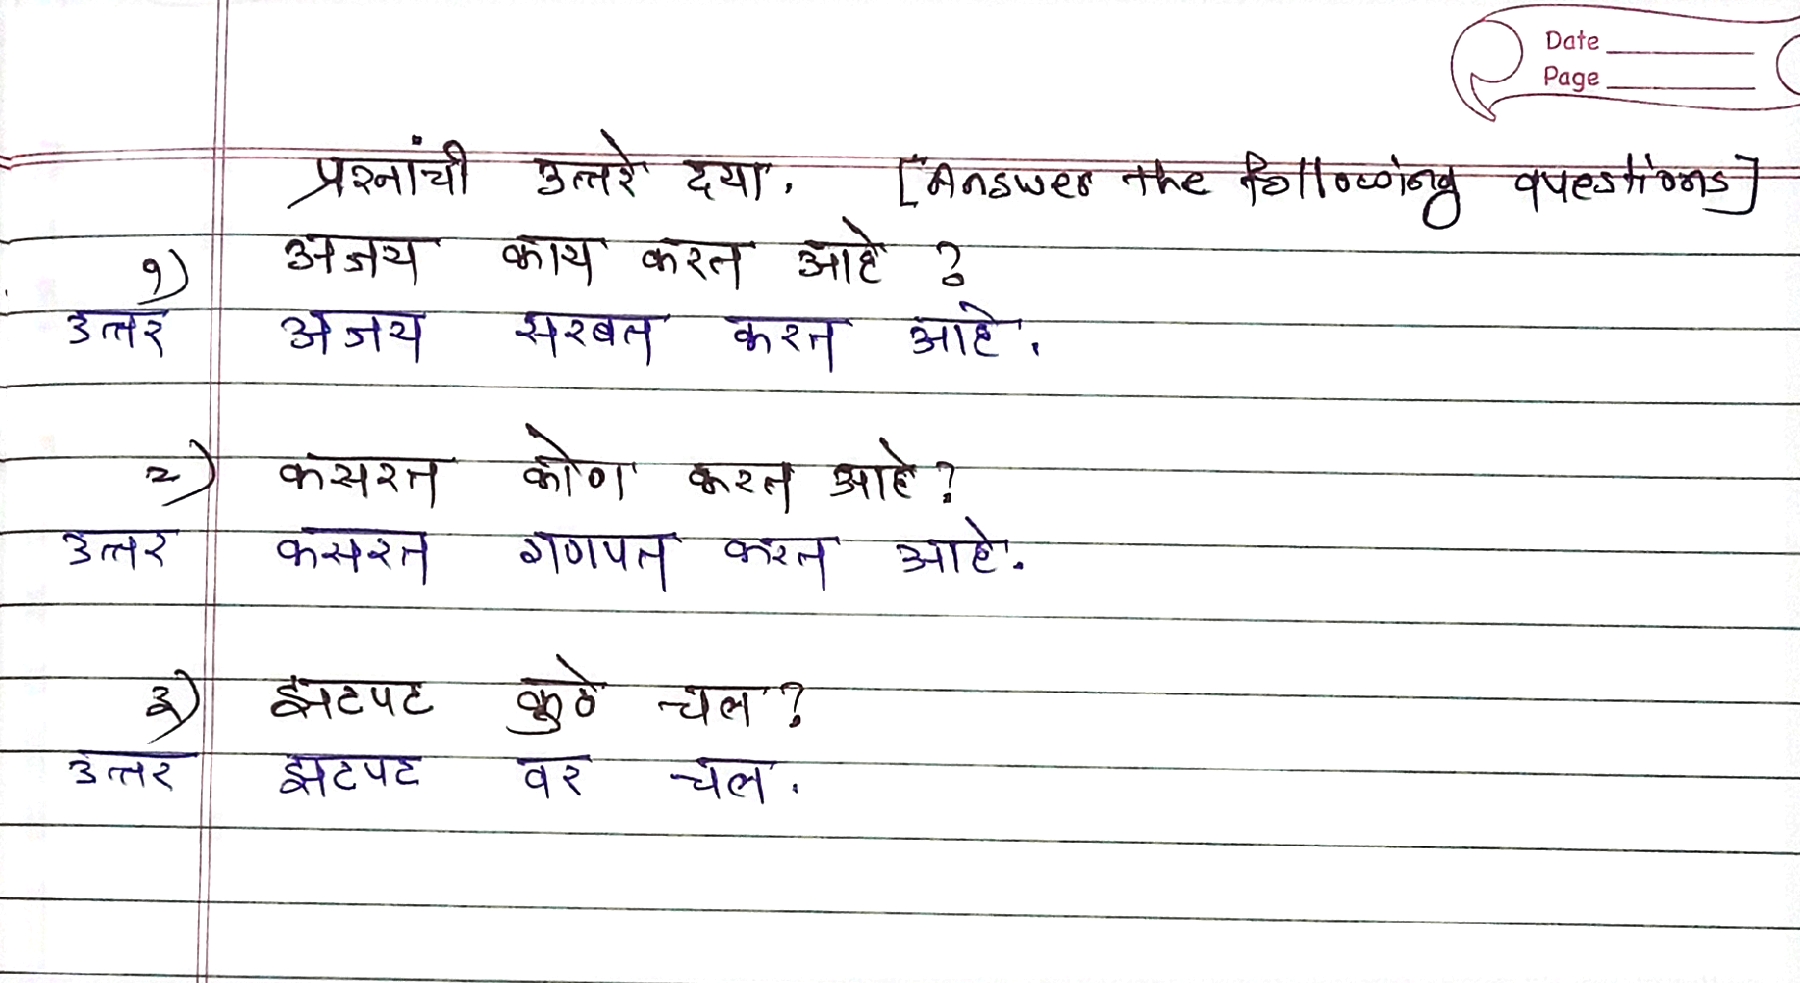 Date
Page
प्रश्नांची उत्तरे दया. [Answer the following questions]
१) अजय काय करत आहे ?
उत्तर अजय सरबत करत आहे.
२) कसरत कोण करत आहे?
उत्तर कसरत गणपत करत आहे.
३) झटपट कुठे चल?
उत्तर झटपट वर चल.